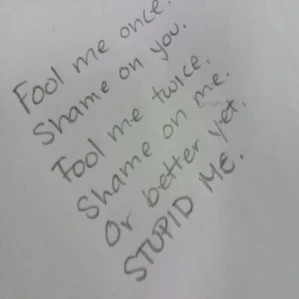 Fool me once.
Shame on you.
Fool me twice.
Shame on me.
Or better yet.
STUPID ME.